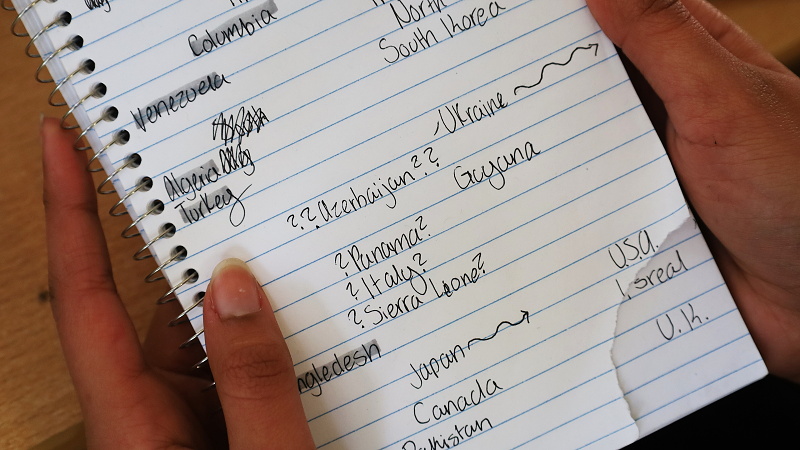 Columbia
North
South Korea
Venezuela
Ukraine
Algeria
Turkey
??Azerbaijan??
Guyana
?Panama?
?Italy?
?Sierra Leone?
USA.
Isreal
U.K.
ngledesh
Japan
Canada
Pakistan